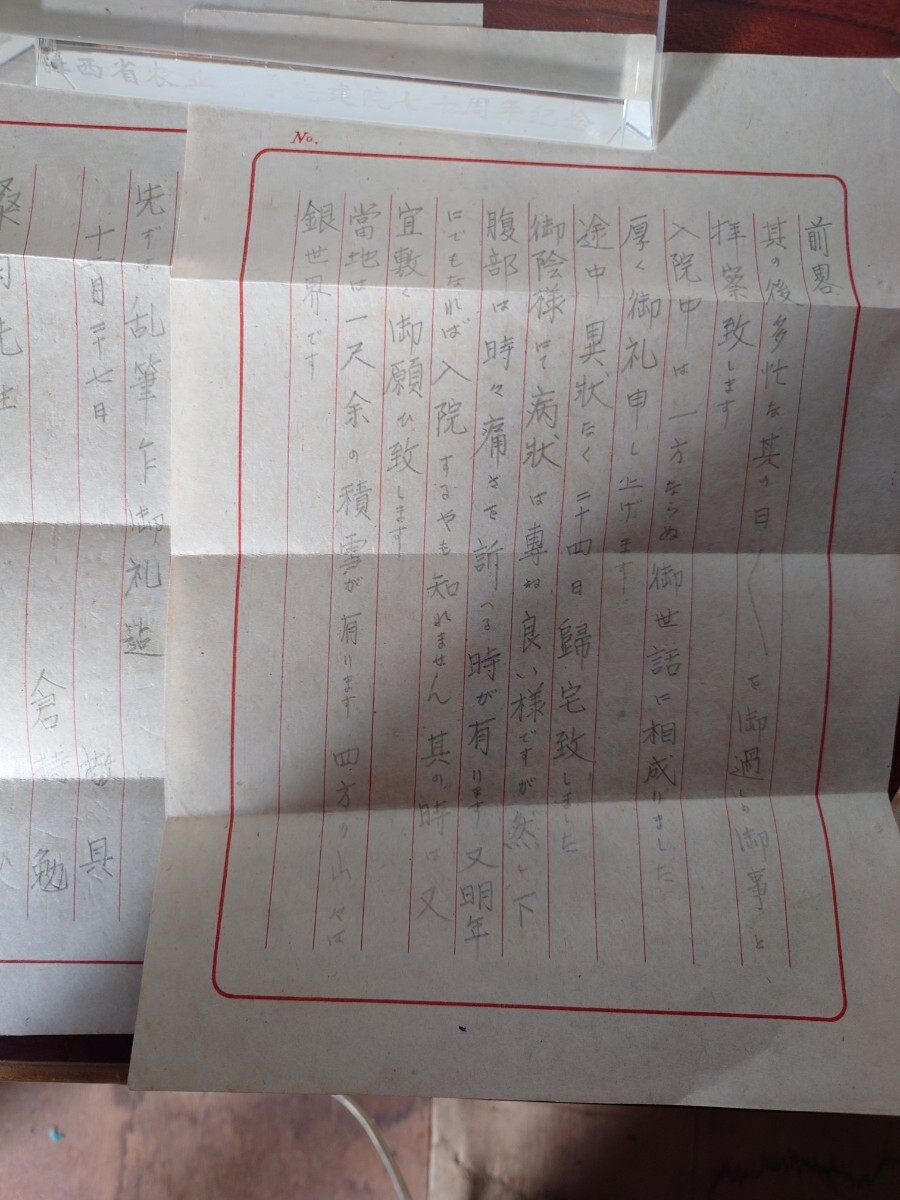 No.
前畧
其の後多忙な其の日〱を御過しの御事と
拝察致します
入院中は一方ならぬ御世話に相成りました
厚く御礼申し上げます
途中異状なく二十四日歸宅致しました
御陰様にて病状は専ぬ良い様ですが然し下
腹部は時々痛さを訴へる時が有ります又明年
にでもなれば入院するやも知れません其の時は又
宜敷く御願ひ致します
當地は一尺余の積雪が有ります四方の山々は
銀世界です
先ずは乱筆乍御礼迠
具
十二月二十七日
先生
倉 勉
西省
七十周年